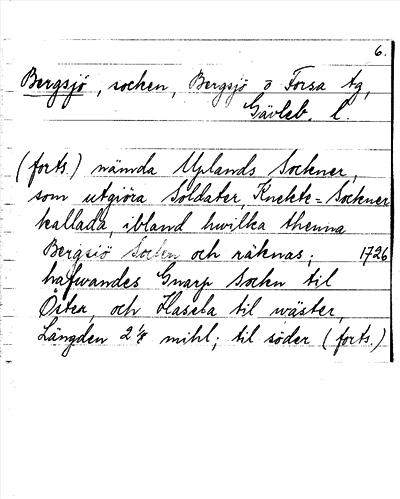 6.
Bergsjö, socken, Bergsjö o Forsa tg,
Gävleb. l.
(forts.) nämda Uplands Sockner,
som utgiöra Soldater, Knekte=Sockner
kallada, ibland hwilka thenna
Bergsiö Sockn och räknas; 1726
hafwandes Gnarp Sockn til
Öster, och Hasela til wäster,
Längden 2 1/8 mihl; til söder (forts.)